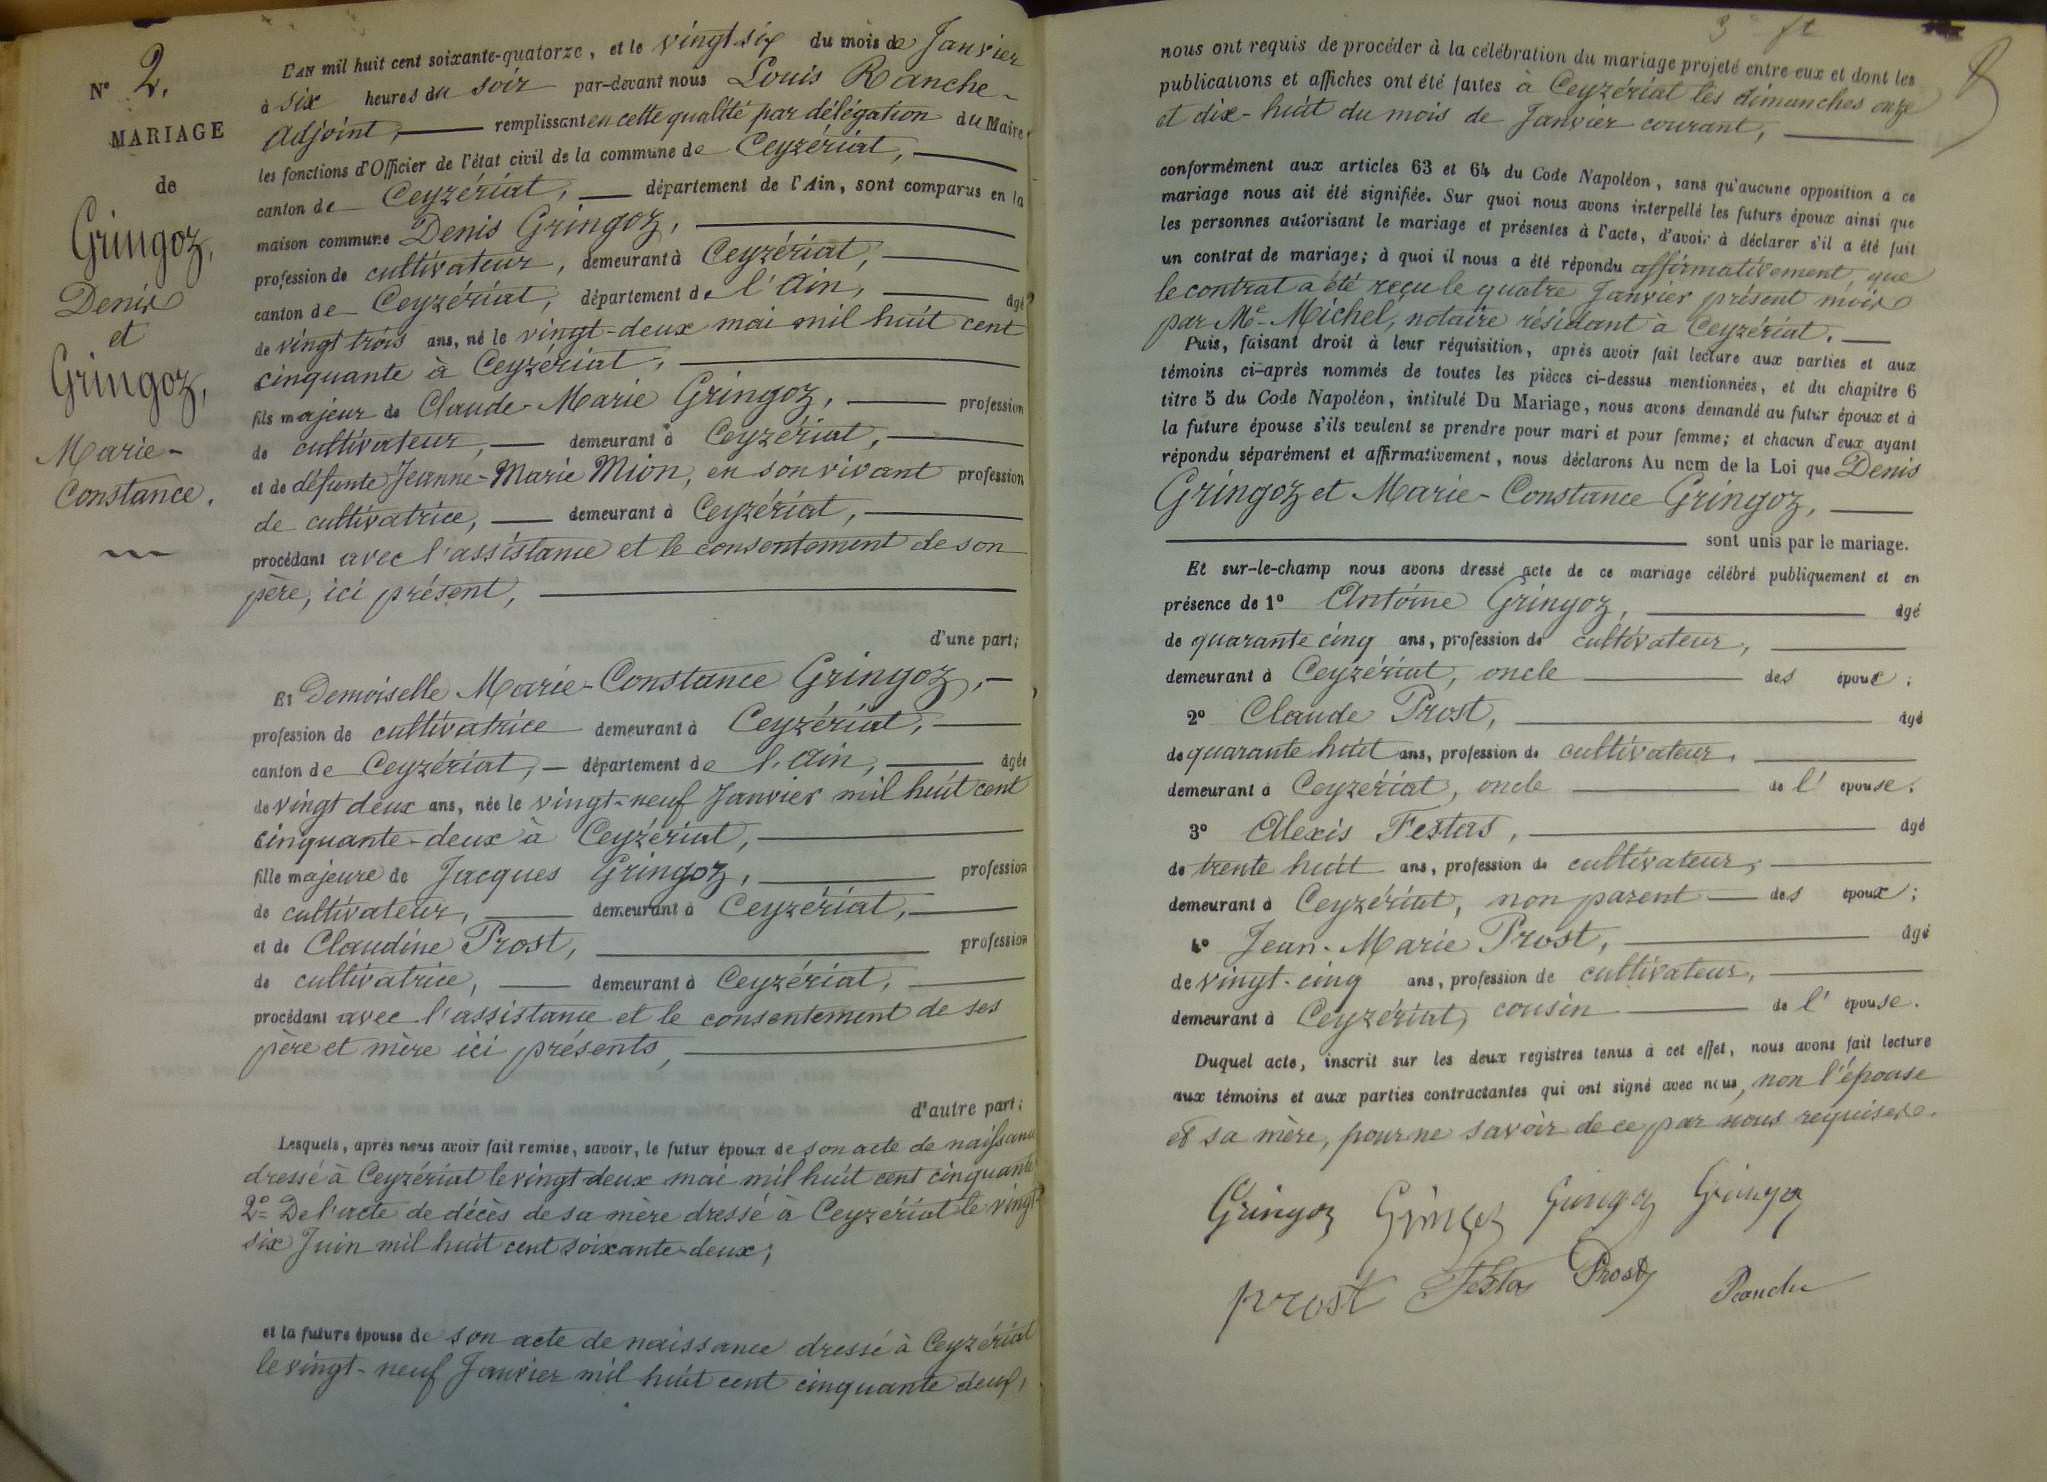 N° 2.
MARIAGE
de
Gringoz,
Denis
et
Gringoz,
Marie-
Constance.
L'AN mil huit cent soixante-quatorze, et le vingt six du mois de Janvier
à six heures du soir par-devant nous Louis Ranche-
Adjoint, remplissant en cette qualité par délégation du Maire
les fonctions d'Officier de l'état civil de la commune de Ceyzériat,
canton de Ceyzériat, département de l'Ain, sont comparus en la
maison commune Denis Gringoz,
profession de cultivateur, demeurant à Ceyzériat,
canton de Ceyzériat, département de l'Ain, âgé
de vingt trois ans, né le vingt-deux mai mil huit cent
cinquante à Ceyzériat,
fils majeur de Claude-Marie Gringoz, profession
de cultivateur, demeurant à Ceyzériat,
et de défunte Jeanne-Marie Mion, en son vivant profession
de cultivatrice, demeurant à Ceyzériat,
procédant avec l'assistance et le consentement de son
père, ici présent,
d'une part;
Et Demoiselle Marie-Constance Gringoz,
profession de cultivatrice demeurant à Ceyzériat,
canton de Ceyzériat, département de l'Ain, âgée
de vingt deux ans, née le vingt-neuf Janvier mil huit cent
cinquante-deux à Ceyzériat,
fille majeure de Jacques Gringoz, profession
de cultivateur, demeurant à Ceyzériat,
et de Claudine Prost, profession
de cultivatrice, demeurant à Ceyzériat,
procédant avec l'assistance et le consentement de ses
père et mère ici présents,
d'autre part;
Lesquels, après nous avoir fait remise, savoir, le futur époux de son acte de naissance
dressé à Ceyzériat le vingt deux mai mil huit cent cinquante
2° De l'acte de décès de sa mère dressé à Ceyzériat le vingt-
six Juin mil huit cent soixante-deux;
et la future épouse de son acte de naissance dressé à Ceyzériat
le vingt-neuf Janvier mil huit cent cinquante deux,
3 ft
nous ont requis de procéder à la célébration du mariage projeté entre eux et dont les
publications et affiches ont été faites à Ceyzériat les dimanches onze
et dix-huit du mois de Janvier courant,
conformément aux articles 63 et 64 du Code Napoléon, sans qu'aucune opposition a ce
mariage nous ait été signifiée. Sur quoi nous avons interpellé les futurs époux ainsi que
les personnes autorisant le mariage et présentes à l'acte, d'avoir à déclarer s'il a été fait
un contrat de mariage; à quoi il nous a été répondu affirmativement, que
le contrat a été reçu le quatre Janvier présent mois
par Me Michel, notaire résidant à Ceyzériat.
Puis, faisant droit à leur réquisition, après avoir fait lecture aux parties et aux
témoins ci-après nommés de toutes les pièces ci-dessus mentionnées, et du chapitre 6
titre 5 du Code Napoléon, intitulé Du Mariage, nous avons demandé au futur époux et à
la future épouse s'ils veulent se prendre pour mari et pour femme; et chacun d'eux ayant
répondu séparément et affirmativement, nous déclarons Au nom de la Loi que Denis
Gringoz et Marie-Constance Gringoz,
sont unis par le mariage.
Et sur-le-champ nous avons dressé acte de ce mariage célébré publiquement et en
présence de 1° Antoine Gringoz, âgé
de quarante cinq ans, profession de cultivateur,
demeurant à Ceyzériat, oncle des époux;
2° Claude Prost, âgé
de quarante huit ans, profession de cultivateur,
demeurant à Ceyzériat, oncle de l'épouse.
3° Alexis Festas, âgé
de trente huit ans, profession de cultivateur,
demeurant à Ceyzériat, non parent des époux;
4° Jean-Marie Prost, âgé
de vingt-cinq ans, profession de cultivateur,
demeurant à Ceyzériat, cousin de l'épouse.
Duquel acte, inscrit sur les deux registres tenus à cet effet, nous avons fait lecture
aux témoins et aux parties contractantes qui ont signé avec nous, non l'épouse
et sa mère, pour ne savoir de ce par nous requises.
Gringoz Gringoz Gringoz Gringoz
Prost Festas Prost Ranche